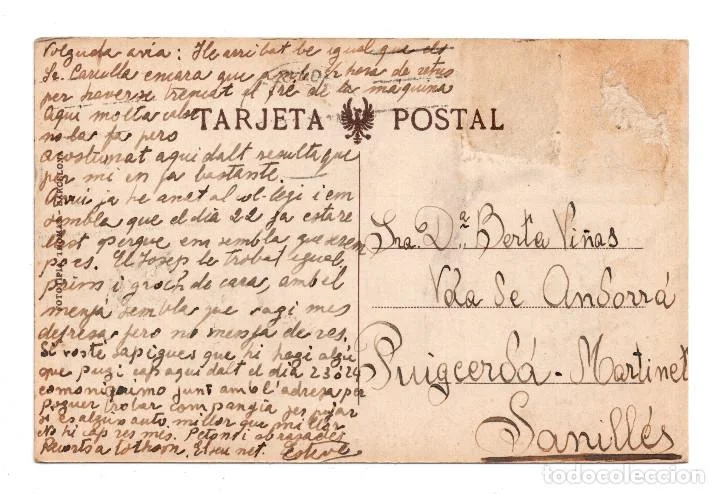 Volguda avia: He arribat be igual que els
Sr. Carulla encara que amb 1 hora de retras
per haverse trencat el fre de la maquina
Aqui molta calor
no la fa pero
TARJETA POSTAL
acostumat aqui dalt resulta que
per mi en fa bastante.
Avui ja he anat al col-legi i em
sembla que el dia 22 ja estare
llest perque em sembla que serem
pocs. El Josep le trobat igual,
prim i groch de cara, amb el
menjá sembla que vagi mes
depresa, pero no menja de res.
Si vosté sapigues que hi hagi algú
que pugi cap aqui dalt el dia 23 o 24
comuniquimo junt amb l'adresa per
poguer trobar companyia per pujar
si es algun auto, millor que millor
No hi cap res mes. Petons i abraçades
Records a tothom. El seu net. Esteve
FOTOTIPIA THOMAS - BARCELONA
Sra. Dª. Berta Viñas
Vda de Andorrá
Puigcerdá - Martinet
Sanillés
todocoleccion.net